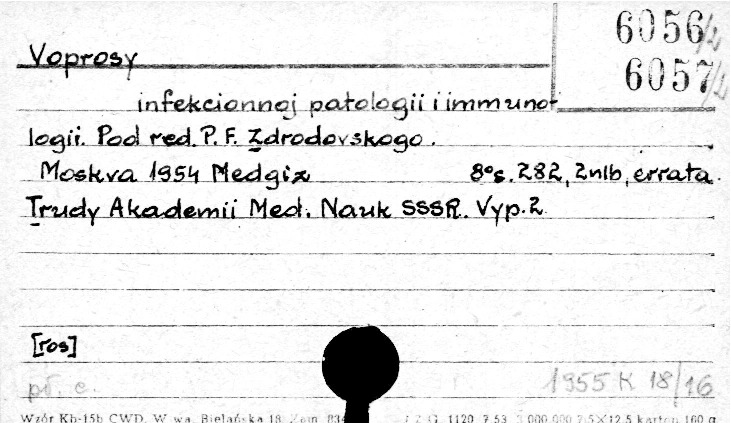 6056/2
6057/2
Voprosy
infekcionnoj patologii i immuno-
logii. Pod red. P. F. Zdrodovskogo.
Moskva 1954 Medgiz 8° s. 282, 2nlb, errata.
Trudy Akademii Med. Nauk SSSR. Vyp. 2
[ros]
pł. c. 1955 K 18/16
Wzór Kb-15b CWD, W-wa, Bielańska 18. Zam. 1120 7.53 3 000 000 7,5×12,5 karton 160 g